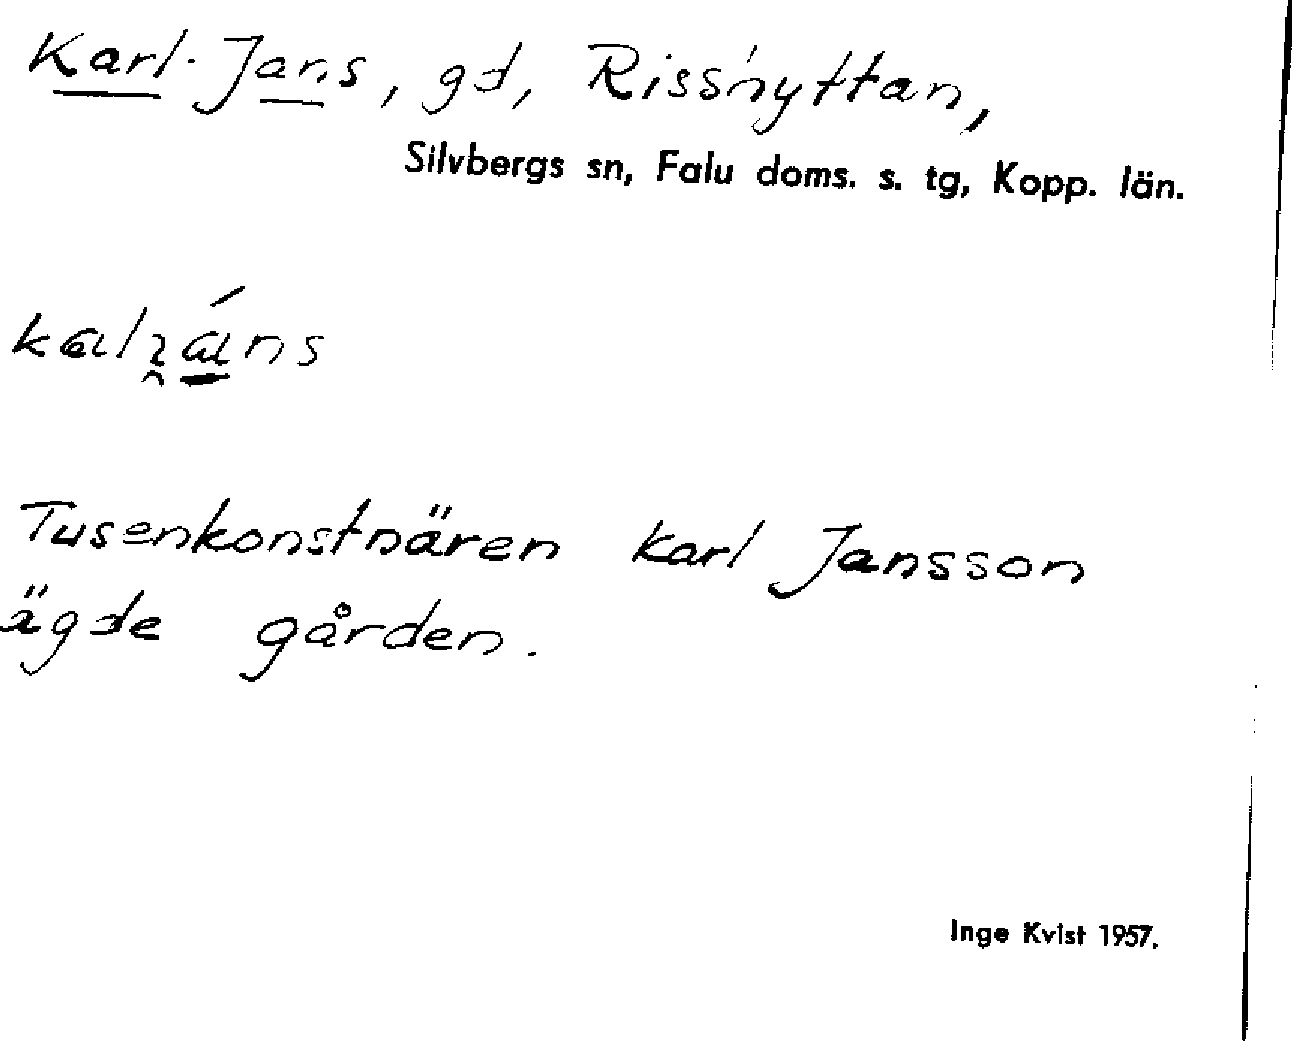 Karl-Jans, gd, Risshyttan,
Silvbergs sn, Falu doms. s. tg, Kopp. län.
Tusenkonstnären Karl Jansson
ägde gården.
Inge Kvist 1957.